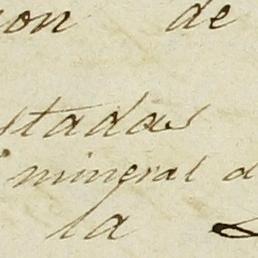 on de
stadas
mineral d
la